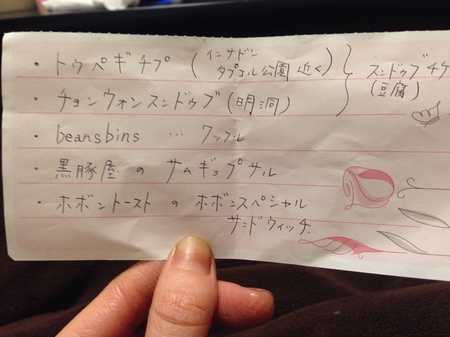 ・トゥペギチプ (インサドン タプコル公園 近く)
・チョンウォンスンドゥブ (明洞)
スンドゥブチゲ
(豆腐)
・beansbins … ワッフル
・黒豚屋 の サムギョプサル
・ホボントースト の ホボンスペシャル
サンドウィッチ.